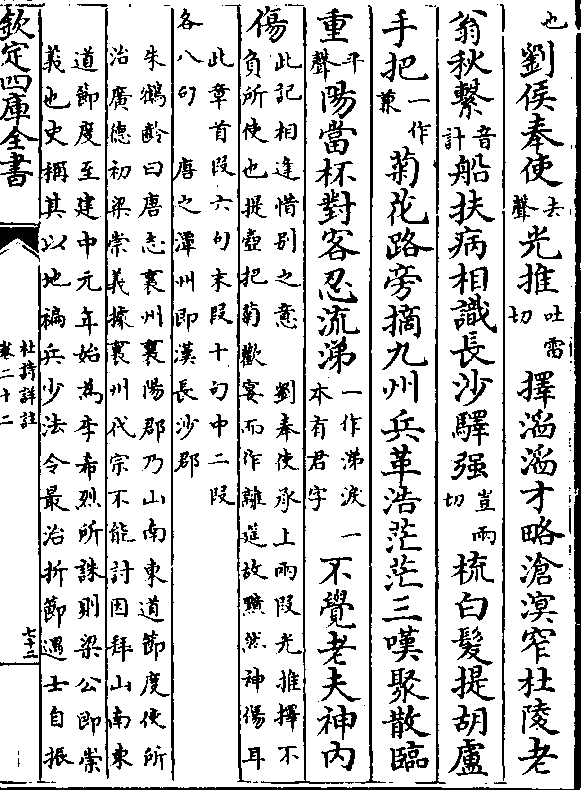 也劉侯奉使去聲光推吐雷切擇滔滔才略滄溟窄杜陵老
翁秋繫音計船扶病相識長沙驛强豈兩切梳白髮提胡盧
手把一作兼菊花路旁摘九州兵革浩茫茫三嘆聚散臨
重平聲陽當杯對客忍流涕一作涕淚一本有君字不覺老夫神內
傷此記相逢惜别之意 劉奉使承上兩段光推擇不負所使也提壺把菊歡宴而作離筵故黯然神傷耳
此章首段六句末段十句中二段各八句 唐之潭州即漢長沙郡
朱鶴齡曰唐志襄州襄陽郡乃山南東道節度使所
治廣德初梁崇義據襄州代宗不能討因拜山南東
道節度至建中元年始為李希烈所誅則梁公即崇
義也史稱其以地褊兵少法令最治折節遇士自振
欽定四庫全書
杜詩詳註
卷二十二